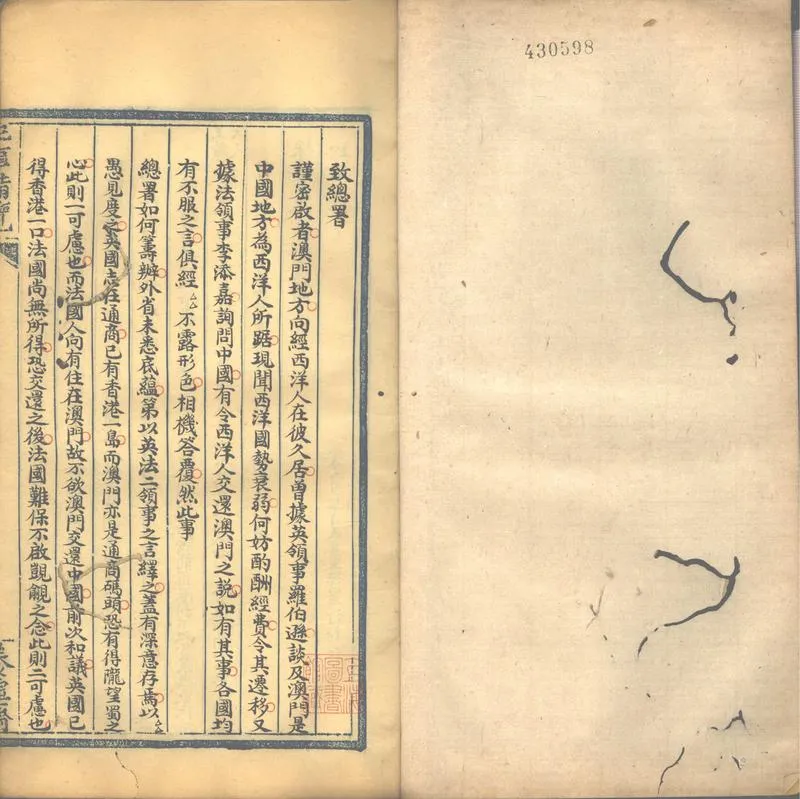 430598
致總署
謹密啟者澳門地方向經西洋人在彼久居曾據英領事羅伯遜談及澳門是
中國地方為西洋人所踞現聞西洋國勢衰弱何妨酌酬經費令其遷移又
據法領事李添嘉詢問中國有令西洋人交還澳門之說如有其事各國均
有不服之言俱經厶厶不露形色相機答覆然此事
總署如何籌辦外省未悉底蘊第以英法二領事之言繹之蓋有深意存焉以厶厶
愚見度之英國志在通商已有香港一島而澳門亦是通商碼頭恐有得隴望蜀之
心此則一可慮也而法國人向有住在澳門故不欲澳門交還中國前次和議英國已
得香港一口法國尚無所得恐交還之後法國難保不啟覬覦之念此則二可慮也